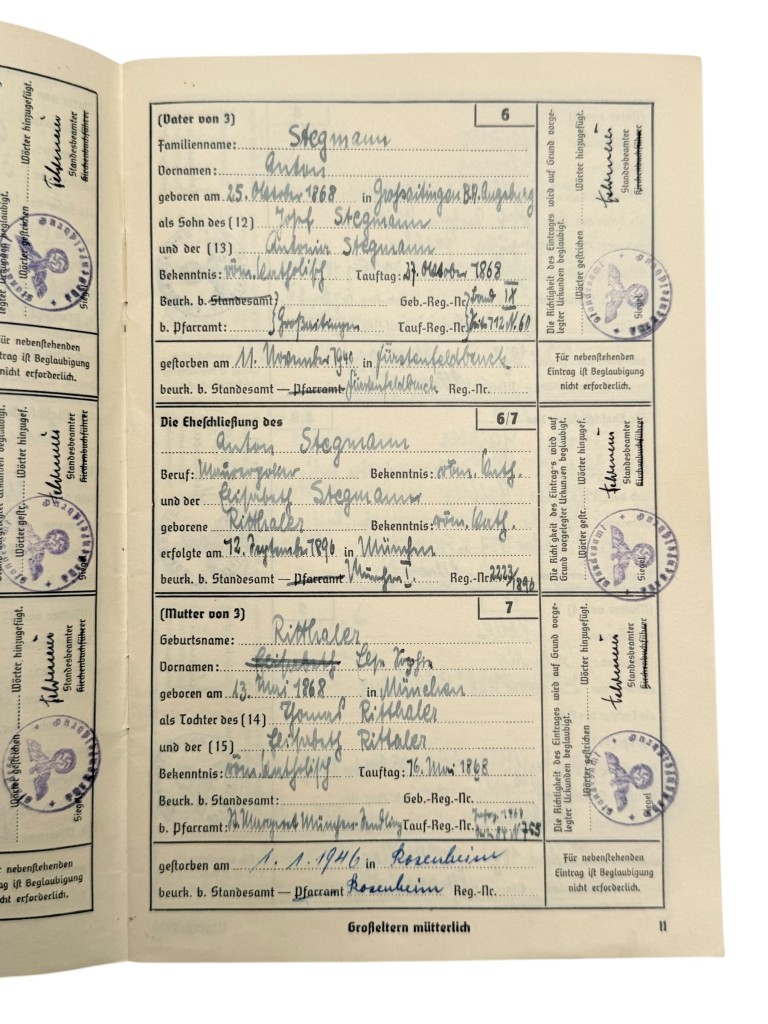 (Vater von 3) 6
Familienname: Stegmann
Vornamen: Anton
geboren am 25. Oktober 1868 in Großaitingen B.A. Augsburg
als Sohn des (12) Josef Stegmann
und der (13) Antonia Stegmann
Bekenntnis: röm. katholisch Tauftag: 27. Oktober 1868
Beurk. b. Standesamt: Geb.-Reg.-Nr. Band IX
b. Pfarramt: Großaitingen Tauf-Reg.-Nr. Seite 712 N. 60
gestorben am 11. November 1940 in Fürstenfeldbruck
beurk. b. Standesamt — Pfarramt Fürstenfeldbruck Reg.-Nr.
Die Eheschließung des 6/7
Anton Stegmann
Beruf: Maurerpolier Bekenntnis: röm. kath.
und der Elisabeth Stegmann
geborene Ritthaler Bekenntnis: röm. kath.
erfolgte am 12. September 1896 in München
beurk. b. Standesamt — Pfarramt München I. Reg.-Nr. 2223/1896
(Mutter von 3) 7
Geburtsname: Ritthaler
Vornamen: Elisabeth Sophie
geboren am 13. Mai 1868 in München
als Tochter des (14) Thomas Ritthaler
und der (15) Elisabeth Rittaler
Bekenntnis: röm. katholisch Tauftag: 16. Mai 1868
Beurk. b. Standesamt: Geb.-Reg.-Nr.
b. Pfarramt: St. Margaret München-Sendling Tauf-Reg.-Nr.
gestorben am 1.1.1946 in Rosenheim
beurk. b. Standesamt — Pfarramt Rosenheim Reg.-Nr.
Großeltern mütterlich 11
Die Richtigkeit des Eintrages wird auf Grund vorge-
legter Urkunden beglaubigt.
Wörter gestrichen Wörter hinzugefügt.
Standesamter
Kirchenbuchführer
Siegel
Für nebenstehenden
Eintrag ist Beglaubigung
nicht erforderlich.
Die Richtigkeit des Eintrags wird auf
Grund vorgelegter Urkunden beglaubigt.
Wörter gestr. Wörter hinzugef.
Standesbeamter
Kirchenbuchführer
Siegel
Die Richtigkeit des Eintrages wird auf Grund vorge-
legter Urkunden beglaubigt.
Wörter gestrichen Wörter hinzugefügt.
Standesbeamter
Kirchenbuchführer
Siegel
Für nebenstehenden
Eintrag ist Beglaubigung
nicht erforderlich.